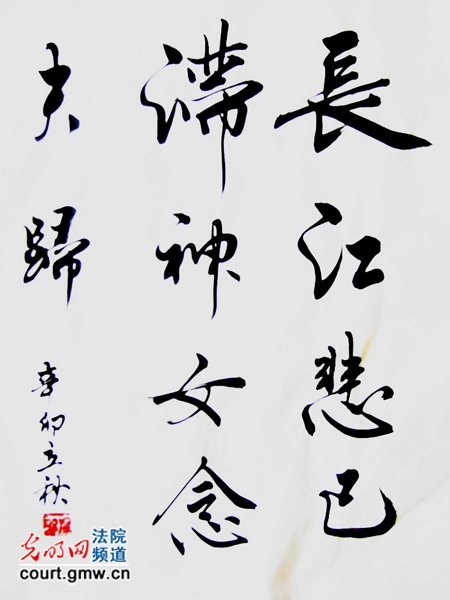 長江悲已
滞神女念
夫歸
辛卯立秋
光明网
法院
频道
court.gmw.cn